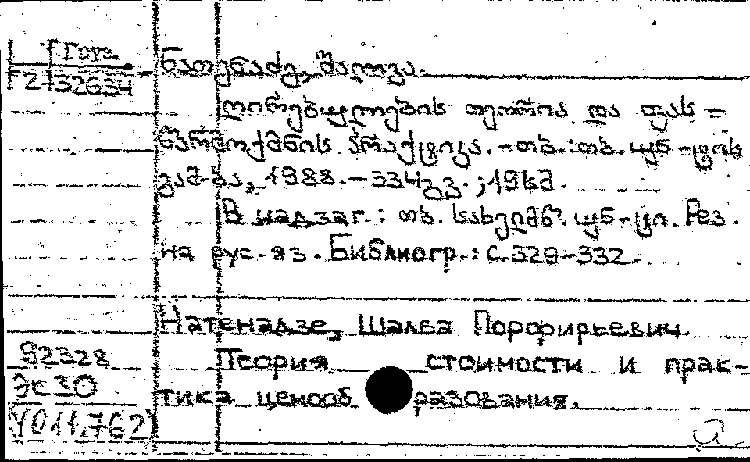 Г2-32634
ნათენაძე, შალვა.
ღირებულების თეორია და ფას-
წარმოქმნის პრაქტიკა. - თბ.: თბ. უნ-ტის
გამ-ბა, 1988. - 334 გვ.; 19 სმ.
В надзаг.: თბ. სახელმწ. უნ-ტი. Рез.
на рус. яз. Библиогр.: с. 329-332.
Натенадзе, Шалва Порфирьевич.
92328 Теория стоимости и прак-
Эс30 тика ценообразования.
У011.762